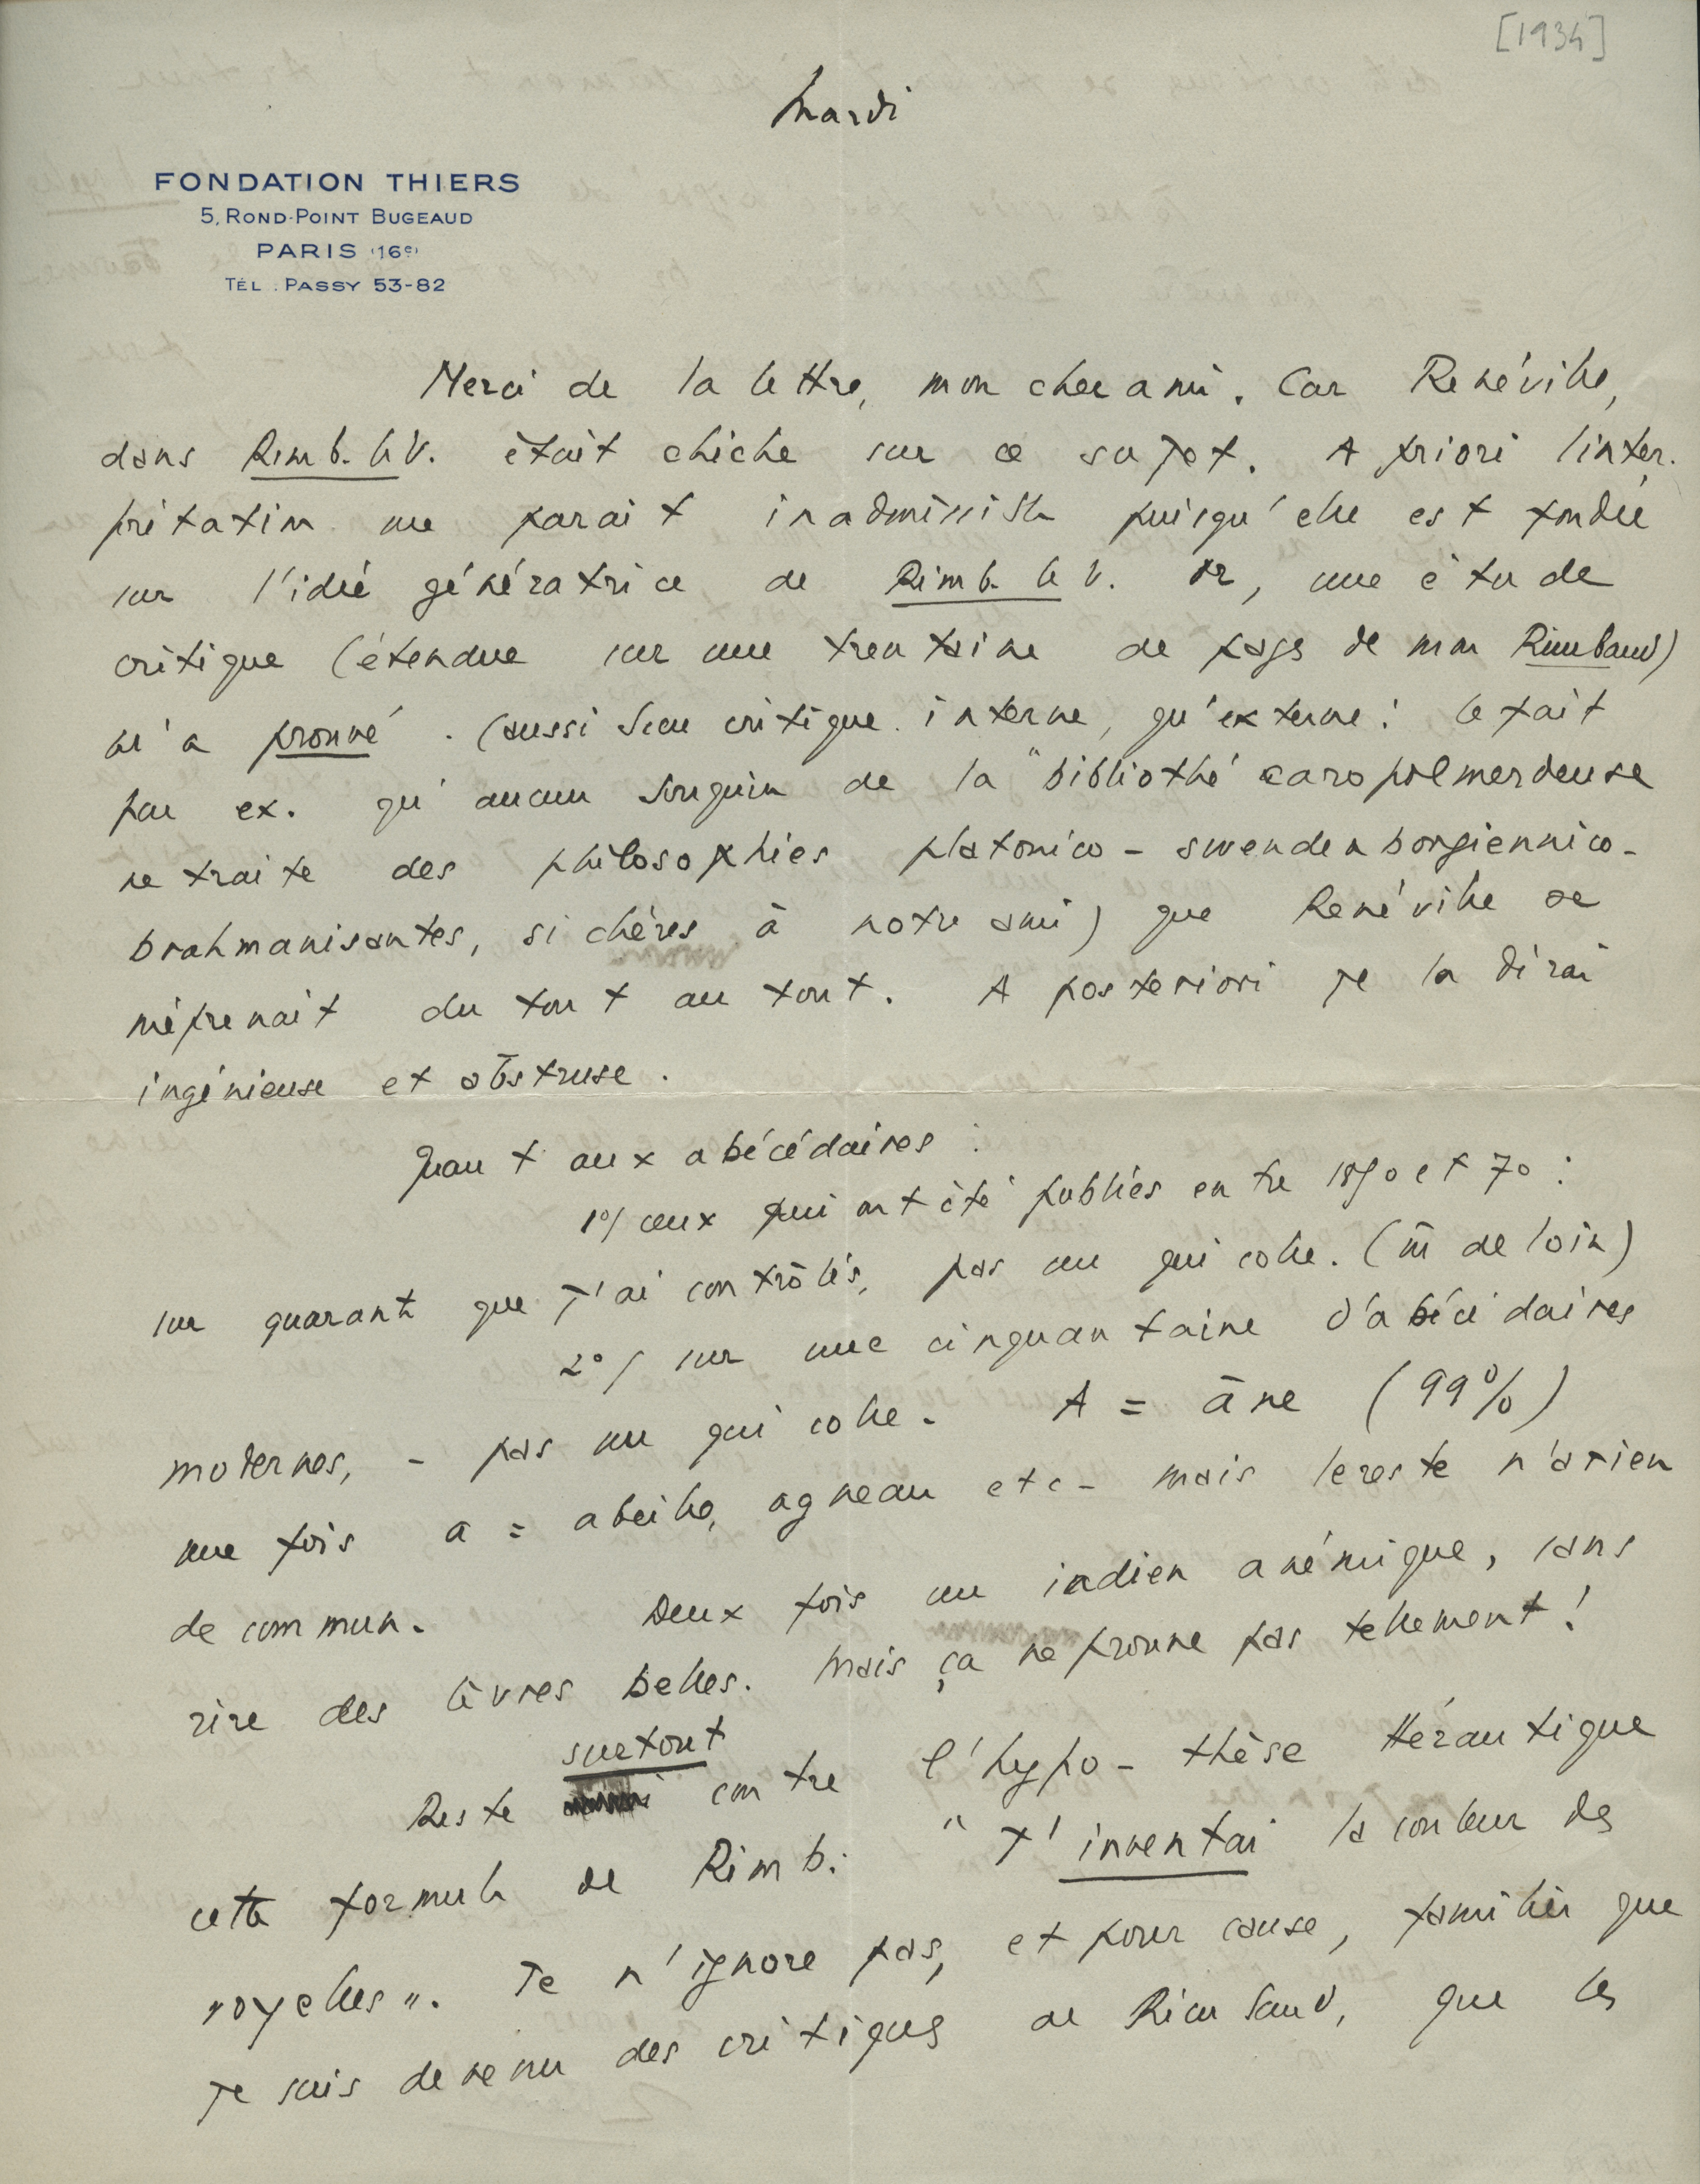 [1934]
Mardi
FONDATION THIERS
5, ROND-POINT BUGEAUD
PARIS (16e)
TÉL : PASSY 53-82
Merci de la lettre, mon cher ami. Car Renéville,
dans Rimb. le V. était chiche sur ce sujet. A priori l'inter-
prétation me parait inadmissible puisqu'elle est fondée
sur l'idée génératrice de Rimb. le V. Or, une étude
critique (étendue sur une trentaine de pages de mon Rimbaud)
m'a prouvé . (aussi bien critique interne, qu'externe : le fait
par ex. qu'aucun bouquin de la "bibliothé caropolmerdeuse
ne traite des philosophies platonico - swendenborgiennico-
brahmanisantes, si chères à notre ami) que Renéville se
méprenait du tout au tout. A posteriori je la dirai
ingénieuse et abstruse.
Quant aux abécédaires :
1°/ ceux qui ont été publiés entre 1850 et 70 :
sur quarante que j'ai contrôlés, pas un qui colle. (m̄ de loin)
2°/ sur une cinquantaine d'abécédaires
modernes, - pas un qui colle. A = âne (99%)
une fois a = abeille, agneau etc - mais le reste n'a rien
de commun. Deux fois un indien anémique, sans
rire des lèvres belles. Mais ça ne prouve pas tellement !
surtout
Reste contre l'hypo-thèse Hérautique
cette formule de Rimb. "J'inventai la couleur des
voyelles". Je n'ignore pas, et pour cause, familier que
je suis devenu des critiques de Rimbaud, que les